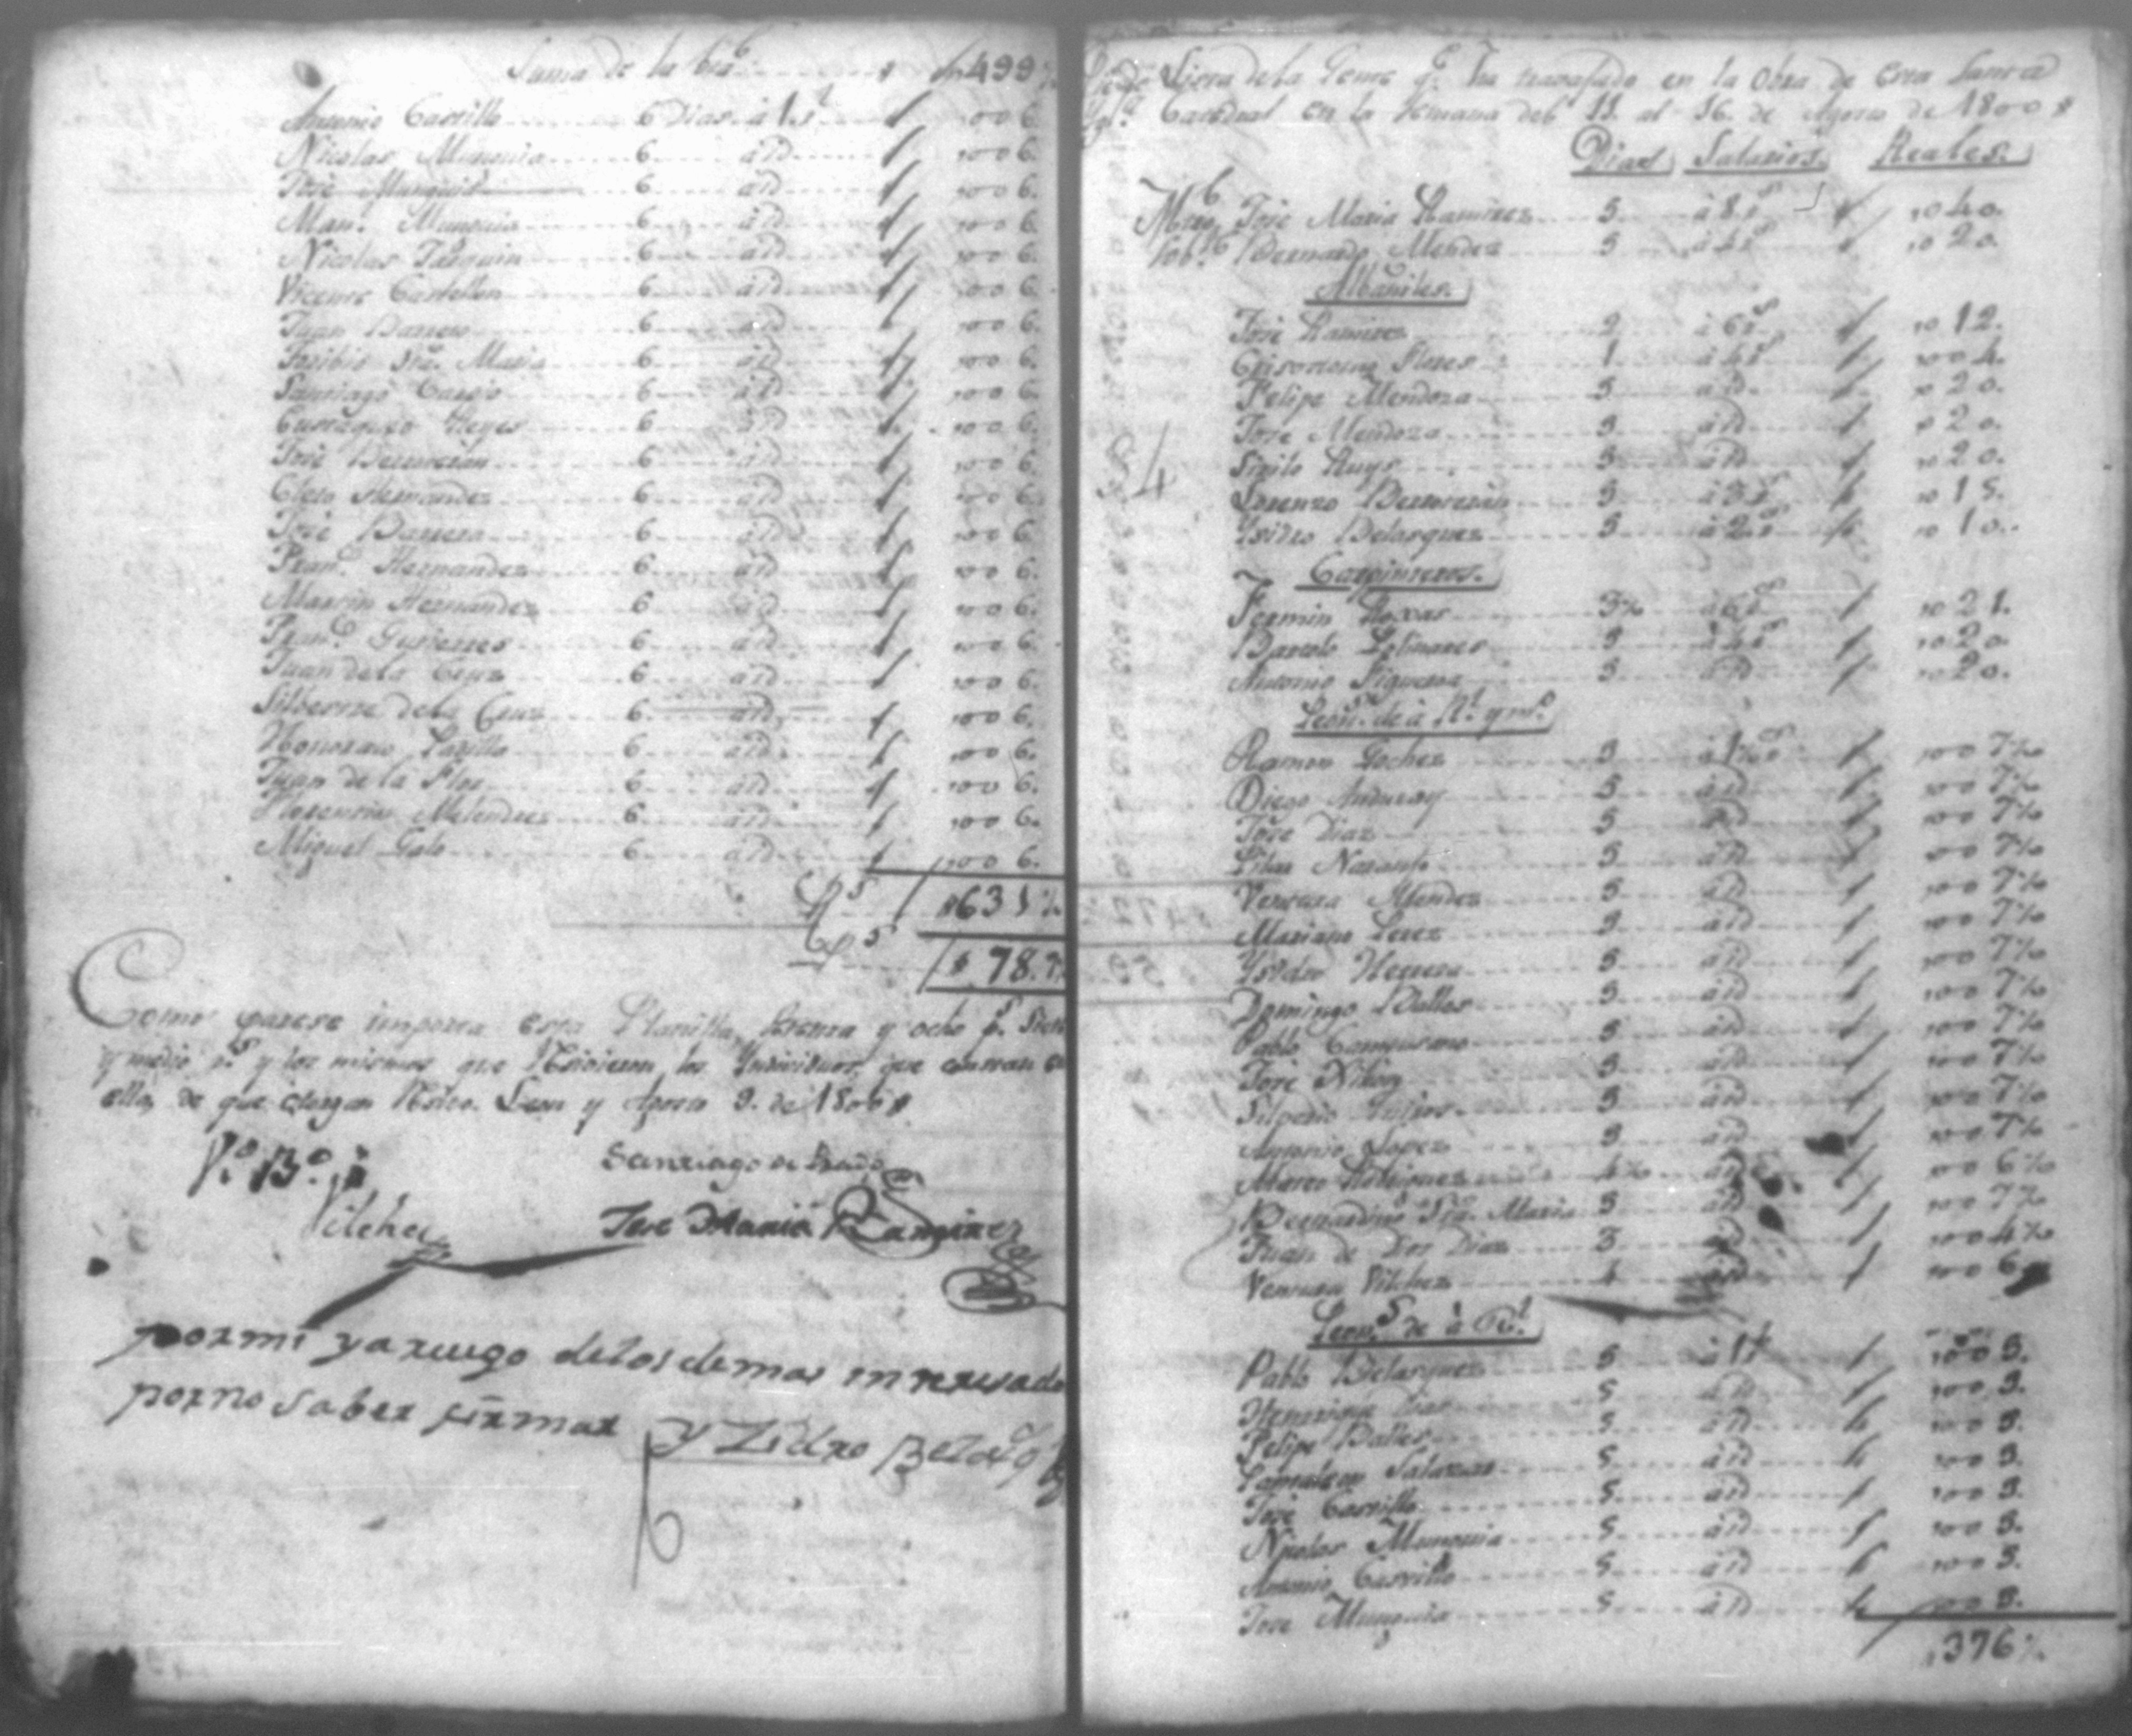 Suma de la bta $ 499½
Antonio Castillo 6 Dias à 1 r. $ 006.
Nicolas Munguia 6 à id $ 006.
José Munguia 6 à id $ 006.
Man.l Munguia 6 à id $ 006.
Nicolas 6 à id $ 006.
Vicente Castellon 6 à id $ 006.
Juan Barrera 6 à id $ 006.
Toribio Sta. Maria 6 à id $ 006.
Santiago 6 à id $ 006.
Reyes 6 à id $ 006.
José Betancurt 6 à id $ 006.
Cleto Hernandez 6 à id $ 006.
José Barrera 6 à id $ 006.
Fran.co Hernandez 6 à id $ 006.
Martin Hernandez 6 à id $ 006.
Fran.co Gutierres 6 à id $ 006.
Juan de la Cruz 6 à id $ 006.
Silbestre de la Cruz 6 à id $ 006.
Honorato 6 à id $ 006.
Juan de la Flor 6 à id $ 006.
Florencio Melendres 6 à id $ 006.
Miguel Galo 6 à id $ 006.
R.s $ 631½
P.s $ 78.7
Como parese importa esta Planilla setenta y ocho p.s siete
y medio r.s y los mismos que Recivieron los Yndividuos que constan en
ella, de que otorgan Resivo. Leon y Agosto 9. de 1800 $
V.o B.o
Vilchez
Santiago de Prado
Jose Maria Ramirez
por mi y a ruego de los demas interesado
por no saber firmar Yzidro Belasq
Lista de la Gente q.e ha travajado en la Obra de esta Santa
Ygl.a Catedral en la semana del 11. al 16. de Agosto de 1800 $
Dias Salarios. Reales.
Mtro José Maria Ramirez 5 à 8 r.s $ 040.
Sob.te Bernardo Mendez 5 à 4 r.s $ 020.
Albañiles.
José Ramirez 2 à 6 r.s $ 012.
Crisostomo Flores 1 à 4 r.s $ 004.
Felipe Mendoza 5 à id $ 020.
José Mendoza 5 à id $ 020.
Ruys 5 à id $ 020.
Lorenzo Betancurt 5 à 3 r.s $ 015.
Ysidro Belasquez 5 à 2 r.s $ 010.
84
Carpinteros.
Fermin Roxas 3½ à 6 r.s $ 021.
Bartolo Colinares 5 à 4 r.s $ 020.
Antonio Figueroa 5 à id $ 020.
Peon.s de à R.l y m.o
Ramon Gochez 5 à 1½ r.s $ 007½
Diego Anduray 5 à id $ 007½
José Diaz 5 à id $ 007½
Naranjo 5 à id $ 007½
Ventura Mendez 5 à id $ 007½
Mariano Perez 5 à id $ 007½
Ysidro Herrera 5 à id $ 007½
Domingo Balles 5 à id $ 007½
Pablo Campusano 5 à id $ 007½
José 5 à id $ 007½
Silverio 5 à id $ 007½
Antonio Lopez 5 à id $ 007½
Marco Rodriguez 4½ à id $ 006½
Bernardino Sta. Maria 5 à id $ 007½
Juan de Dios Diaz 3 à id $ 004½
Ventura Vilchez 4 à id $ 006
Peon.s de à R.l
Pablo Belasquez 5 à 1 r $ 005.
Diaz 5 à id $ 005.
Felipe Balles 5 à id $ 005.
Pantaleon Salazar 5 à id $ 005.
José Castillo 5 à id $ 005.
Nicolas Munguia 5 à id $ 005.
Antonio Castillo 5 à id $ 005.
Jose Munguia 5 à id $ 005.
$ 376½